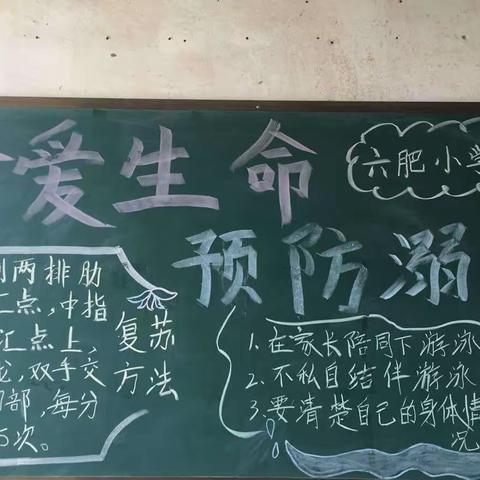 爱生命
六肥小学
预防溺
两排肋
二点,中指
汇点上,
双手交
部,每分
次。
复苏
方法
1.在家长陪同下游泳
2.不私自结伴游泳
3.要清楚自己的身体情
况